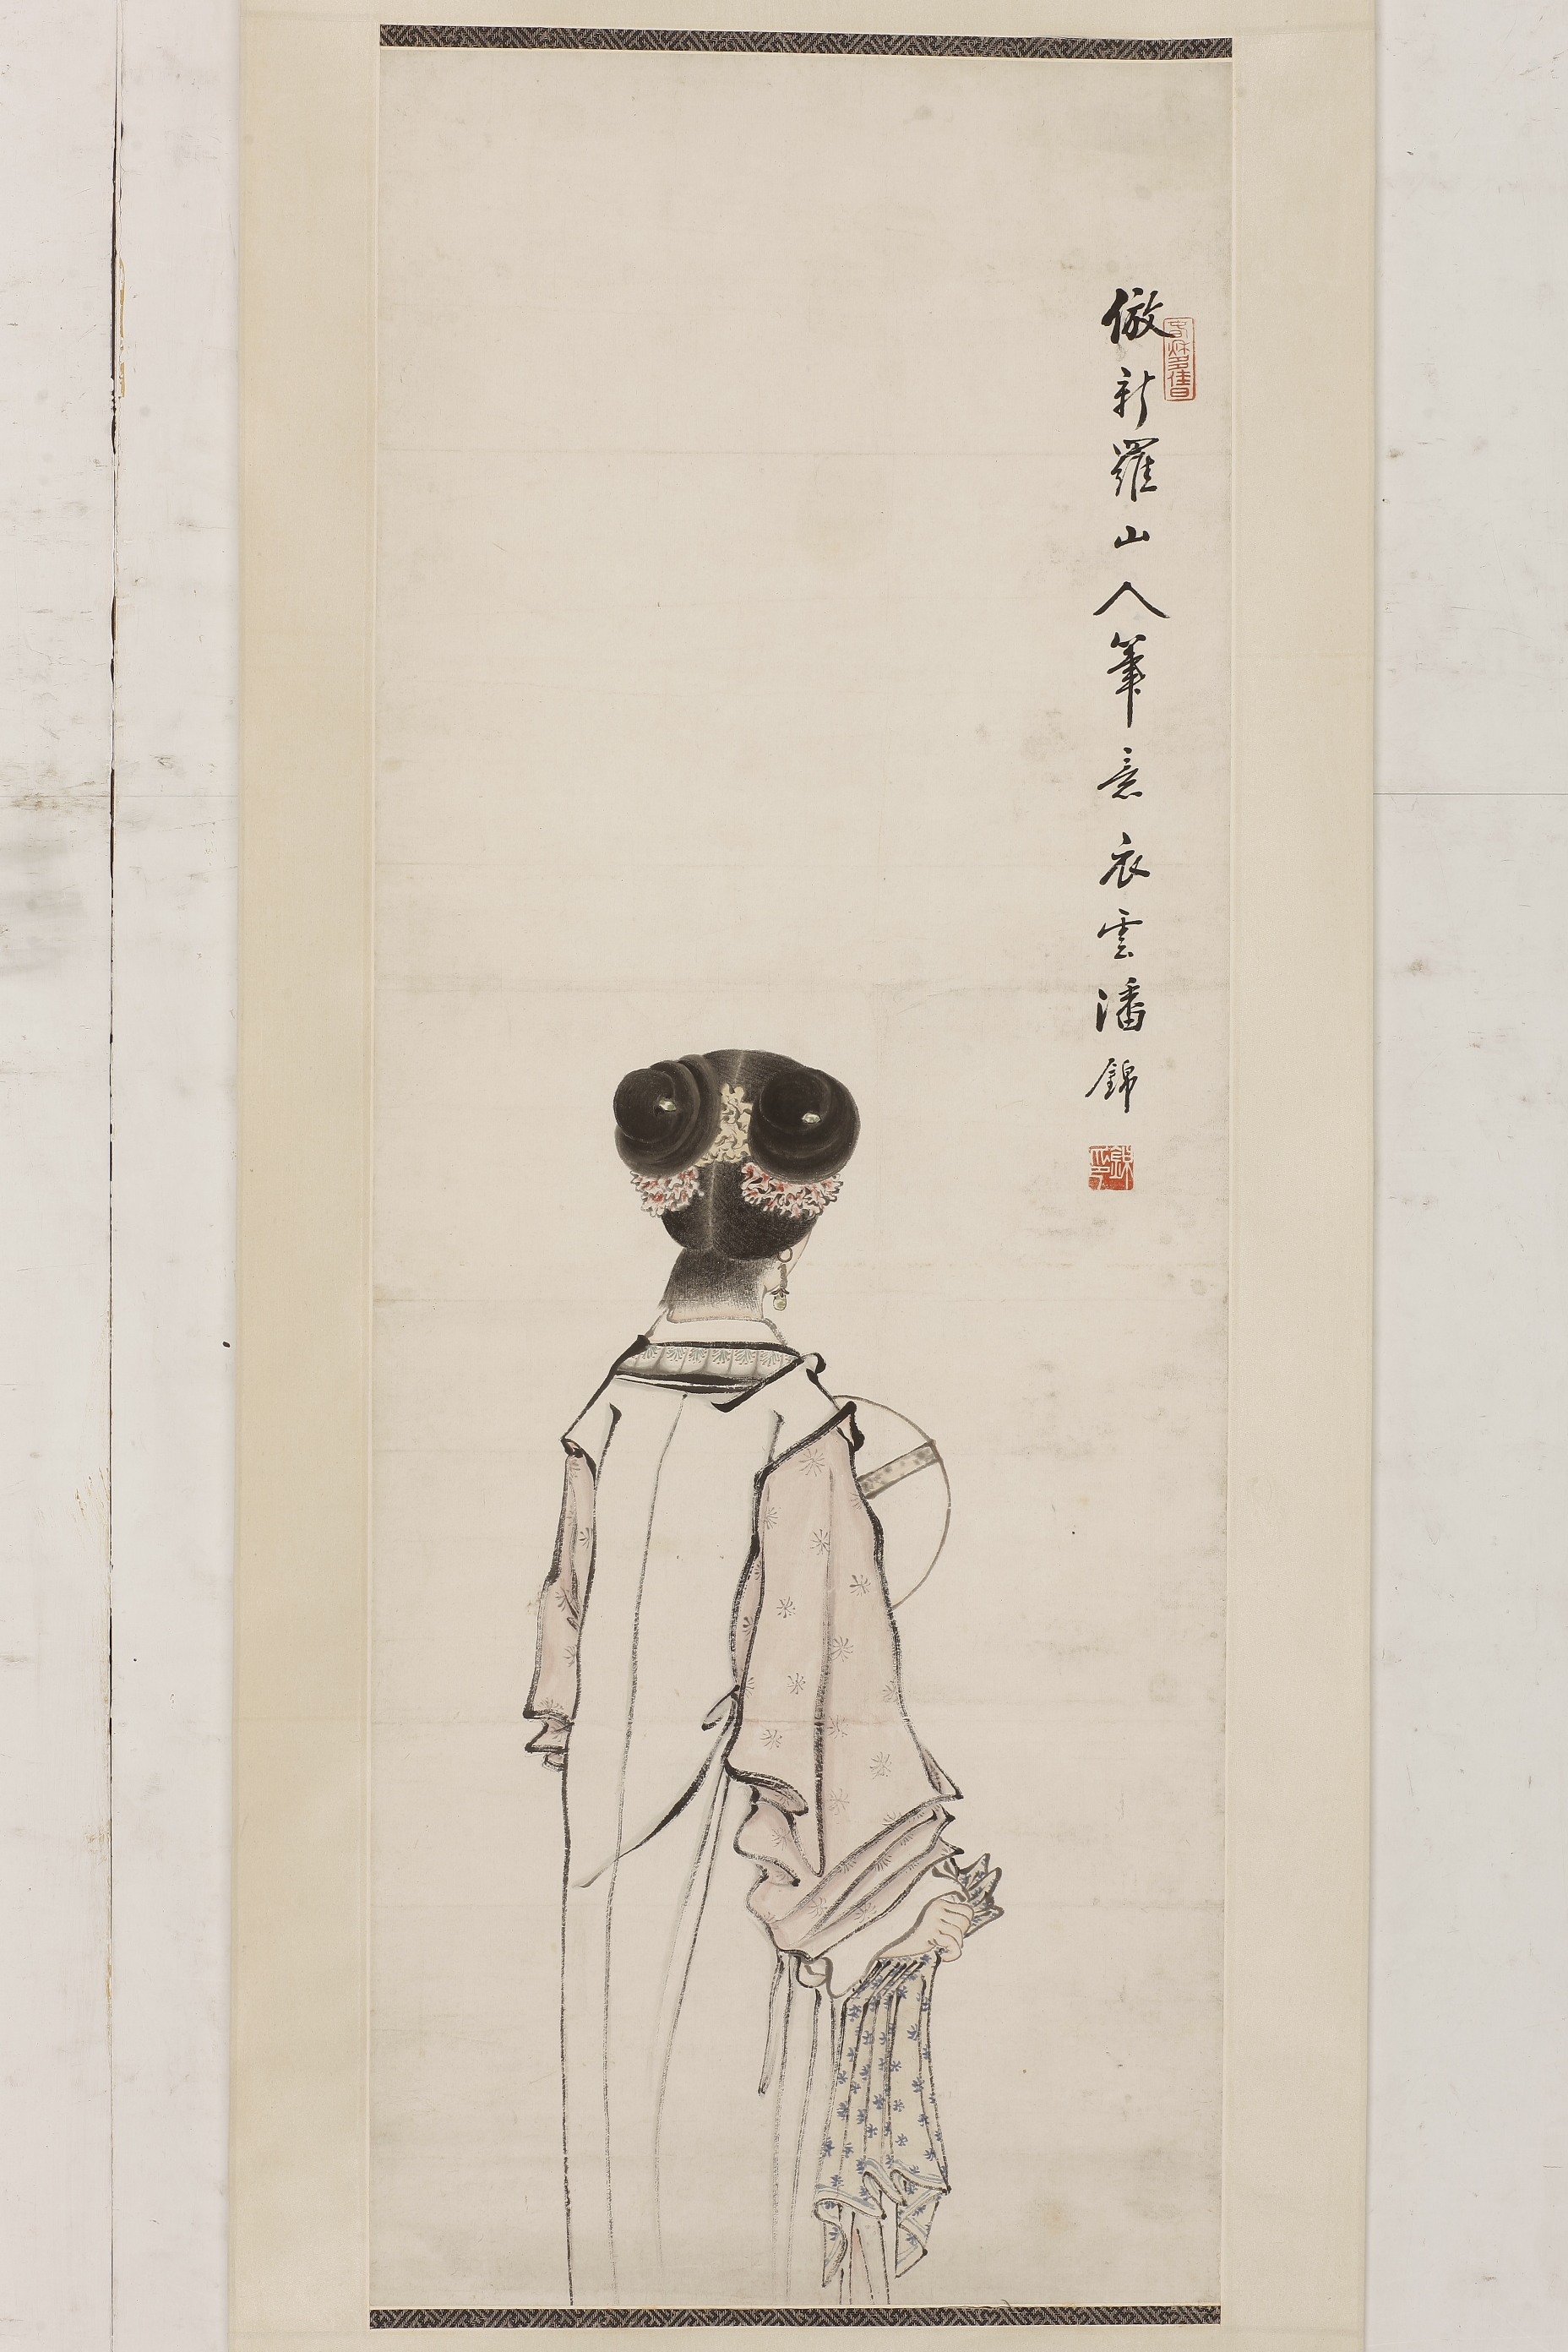 倣新羅山人筆意衣雲潘錦